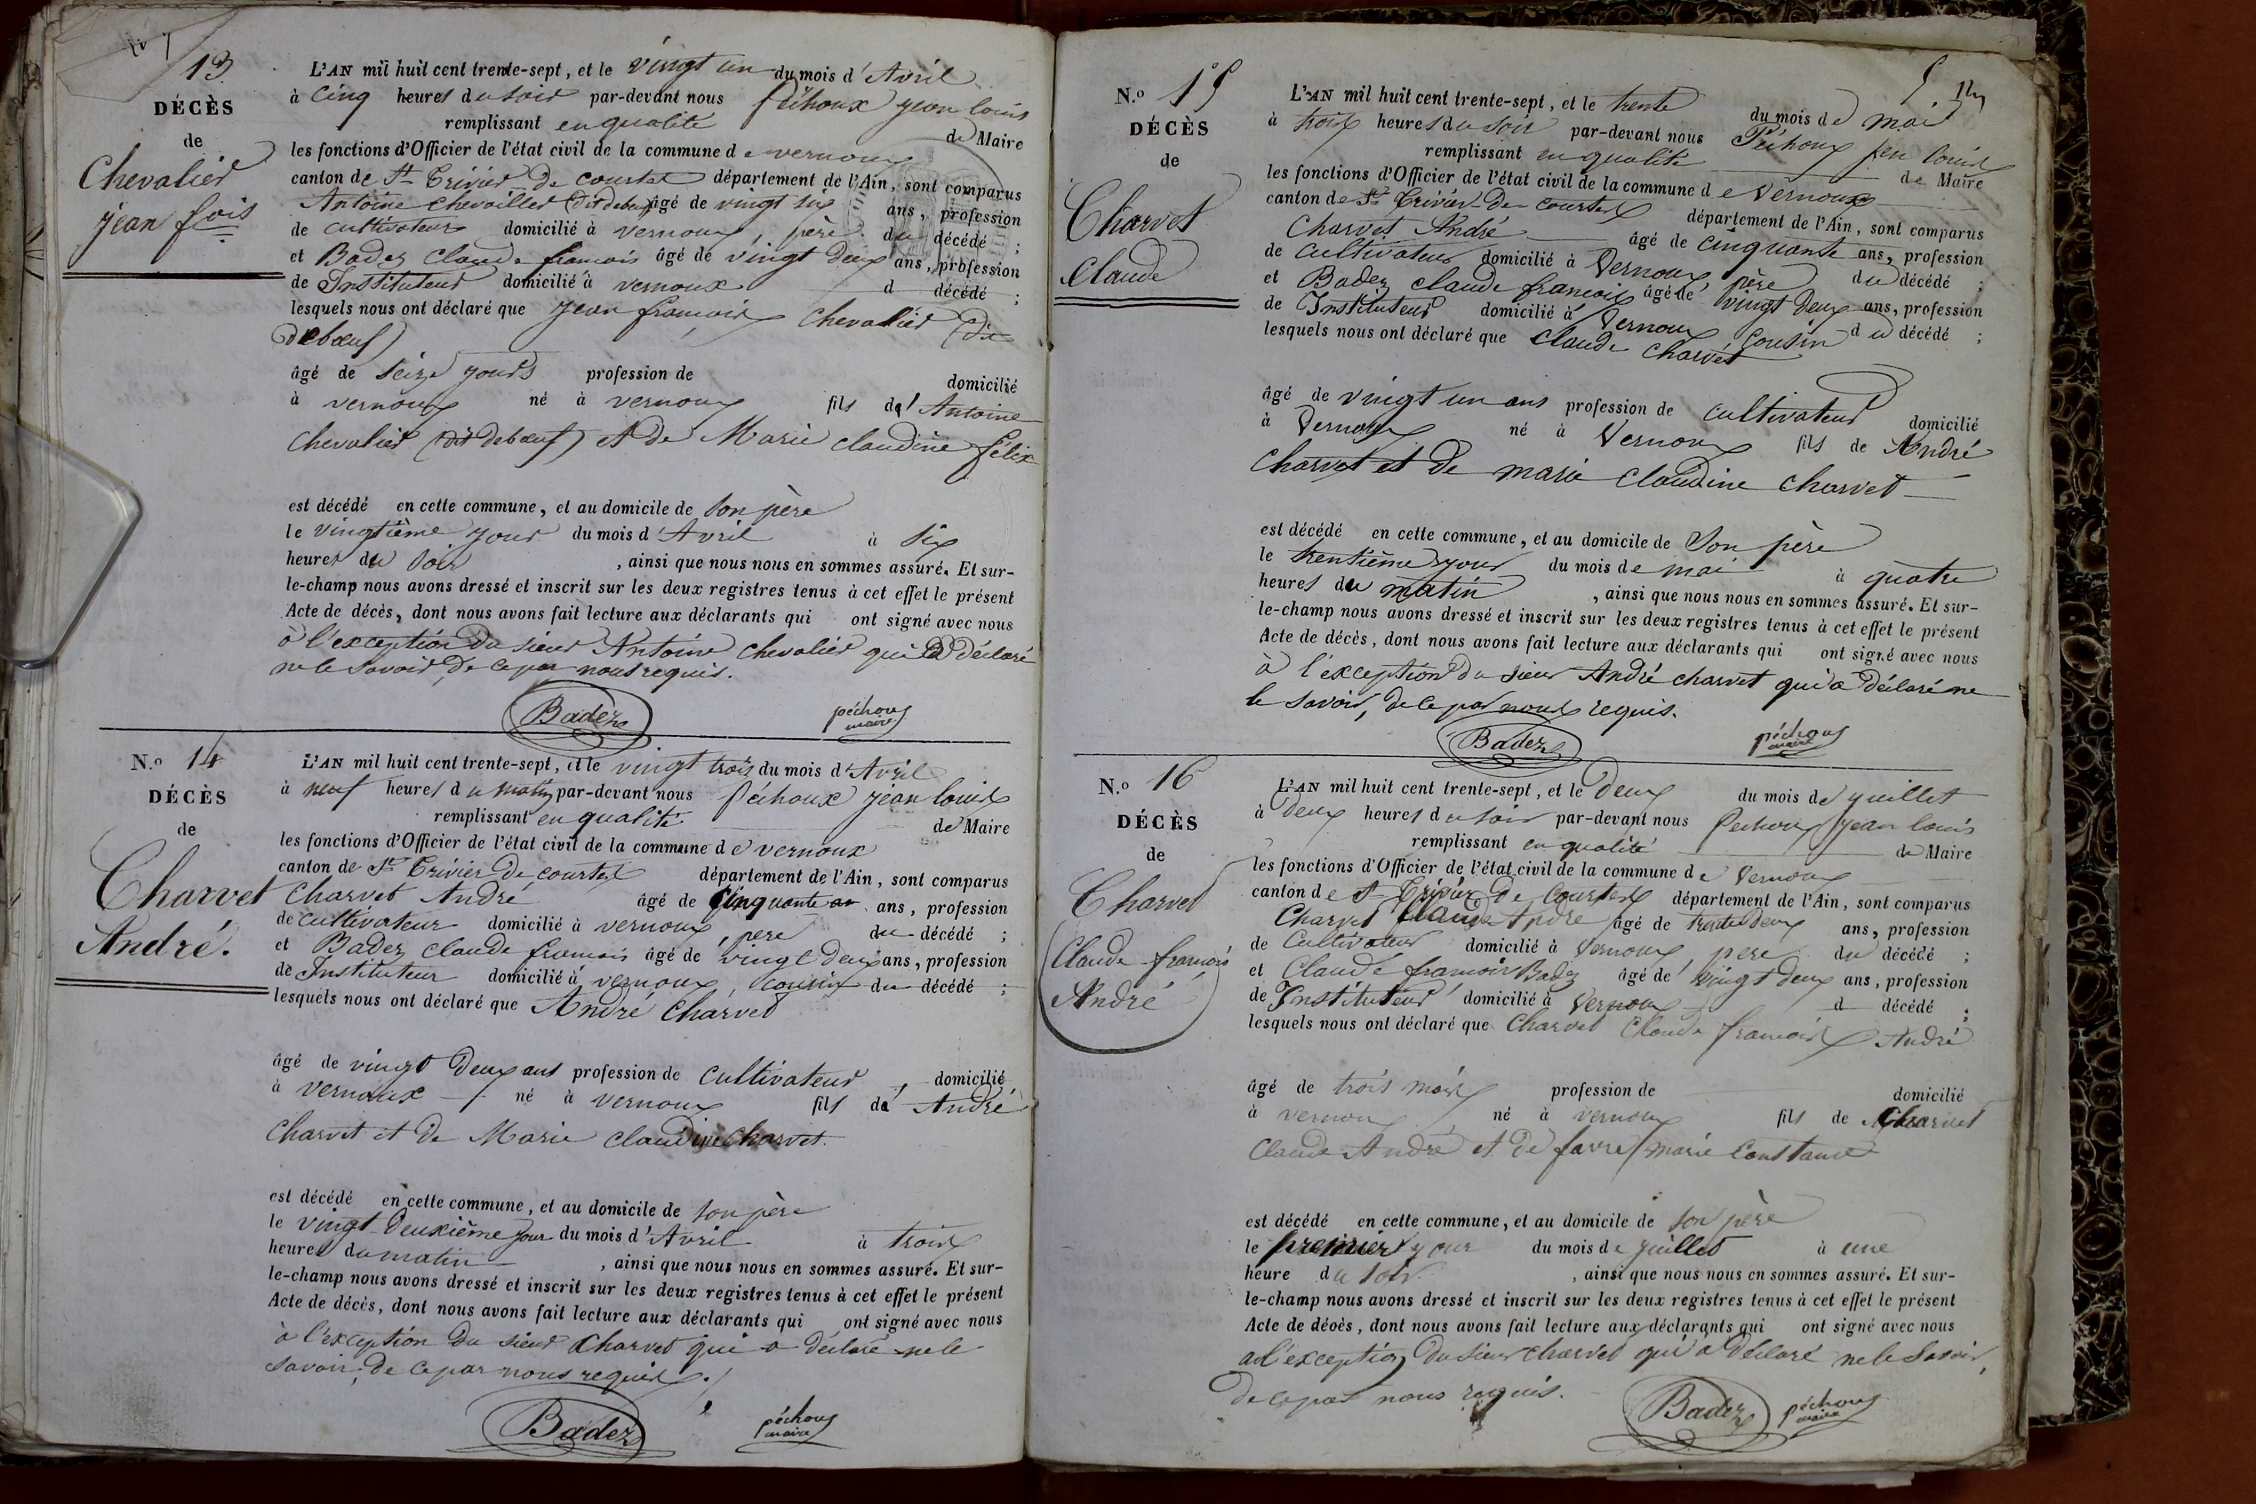 13
DÉCÈS
de
Chevalier
jean fois
L'AN mil huit cent trente-sept, et le vingt un du mois d'Avril
à cinq heures du soir par-devant nous péchoux jean louis
remplissant en qualité de Maire
les fonctions d'Officier de l'état civil de la commune de vernoux
canton de St Trivier de courtes département de l'Ain, sont comparus
Antoine chevallier (dit debœuf) âgé de vingt six ans, profession
de cultivateur domicilié à vernoux, père du décédé ;
et Badez claude francois âgé de vingt deux ans, profession
de Instituteur domicilié à vernoux d décédé ;
lesquels nous ont déclaré que jean francois chevalier (dit
debœuf)
âgé de seize jours profession de domicilié
à vernoux né à vernoux fils de Antoine
chevalier (dit debœuf) et de Marie claudine félix
est décédé en cette commune, et au domicile de son père
le vingtième jour du mois d'Avril à six
heures du soir, ainsi que nous nous en sommes assuré. Et sur-
le-champ nous avons dressé et inscrit sur les deux registres tenus à cet effet le présent
Acte de décès, dont nous avons fait lecture aux déclarants qui ont signé avec nous
à l'exception du sieur Antoine chevalier qui a déclaré
ne le savoir, de ce par nous requis.
Badez péchoux
maire
N.o 14
DÉCÈS
de
Charvet
André.
L'AN mil huit cent trente-sept, et le vingt trois du mois d'Avril
à neuf heures du matin par-devant nous péchoux jean louis
remplissant en qualité de Maire
les fonctions d'Officier de l'état civil de la commune de vernoux
canton de St Trivier de courtes département de l'Ain, sont comparus
Charvet André âgé de cinquante ans, profession
de cultivateur domicilié à vernoux, père du décédé ;
et Badez claude francois âgé de vingt deux ans, profession
de Instituteur domicilié à vernoux, cousin du décédé ;
lesquels nous ont déclaré que André Charvet
âgé de vingt deux ans profession de cultivateur, domicilié
à vernoux né à vernoux fils de André
Charvet et de Marie claudine Charvet.
est décédé en cette commune, et au domicile de son père
le vingt deuxième jour du mois d'Avril à trois
heures du matin, ainsi que nous nous en sommes assuré. Et sur-
le-champ nous avons dressé et inscrit sur les deux registres tenus à cet effet le présent
Acte de décès, dont nous avons fait lecture aux déclarants qui ont signé avec nous
à l'exception du sieur Charvet qui a déclaré ne le
savoir, de ce par nous requis.
Badez péchoux
maire
N.o 15
DÉCÈS
de
Charvet
claude
L'AN mil huit cent trente-sept, et le trente du mois de mai
à trois heures du soir par-devant nous Péchoux jean louis
remplissant en qualité de Maire
les fonctions d'Officier de l'état civil de la commune de Vernoux
canton de St Trivier de courtes département de l'Ain, sont comparus
Charvet André âgé de cinquante ans, profession
de cultivateur domicilié à Vernoux, père du décédé ;
et Badez claude francois âgé de vingt deux ans, profession
de Instituteur domicilié à Vernoux cousin du décédé ;
lesquels nous ont déclaré que claude charvet
âgé de vingt un ans profession de cultivateur domicilié
à Vernoux né à Vernoux fils de André
charvet et de marie claudine charvet
est décédé en cette commune, et au domicile de son père
le trentième jour du mois de mai à quatre
heures du matin, ainsi que nous nous en sommes assuré. Et sur-
le-champ nous avons dressé et inscrit sur les deux registres tenus à cet effet le présent
Acte de décès, dont nous avons fait lecture aux déclarants qui ont signé avec nous
à l'exception du sieur André charvet qui a déclaré ne
le savoir, de ce par nous requis.
Badez péchoux
maire
N.o 16
DÉCÈS
de
Charvet
Claude francois
André
L'AN mil huit cent trente-sept, et le Deux du mois de juillet
à deux heures du soir par-devant nous Pechoux jean louis
remplissant en qualité de Maire
les fonctions d'Officier de l'état civil de la commune de Vernoux
canton de St Trivier de Courtes département de l'Ain, sont comparus
Charvet Claude Andre âgé de trente deux ans, profession
de Cultivateur domicilié à Vernoux, pere du décédé ;
et Claude francois Badez âgé de vingt deux ans, profession
de Instituteur domicilié à Vernoux d décédé ;
lesquels nous ont déclaré que Charvet Claude francois André
âgé de trois mois profession de domicilié
à vernoux né à vernoux fils de Charvet
Claude André et de favre marie Constance
est décédé en cette commune, et au domicile de son père
le premier jour du mois de juillet à une
heure du soir, ainsi que nous nous en sommes assuré. Et sur-
le-champ nous avons dressé et inscrit sur les deux registres tenus à cet effet le présent
Acte de décès, dont nous avons fait lecture aux déclarants qui ont signé avec nous
a l'exception du sieur charvet qui a déclaré ne le savoir,
de ce par nous requis.
Badez péchoux
maire